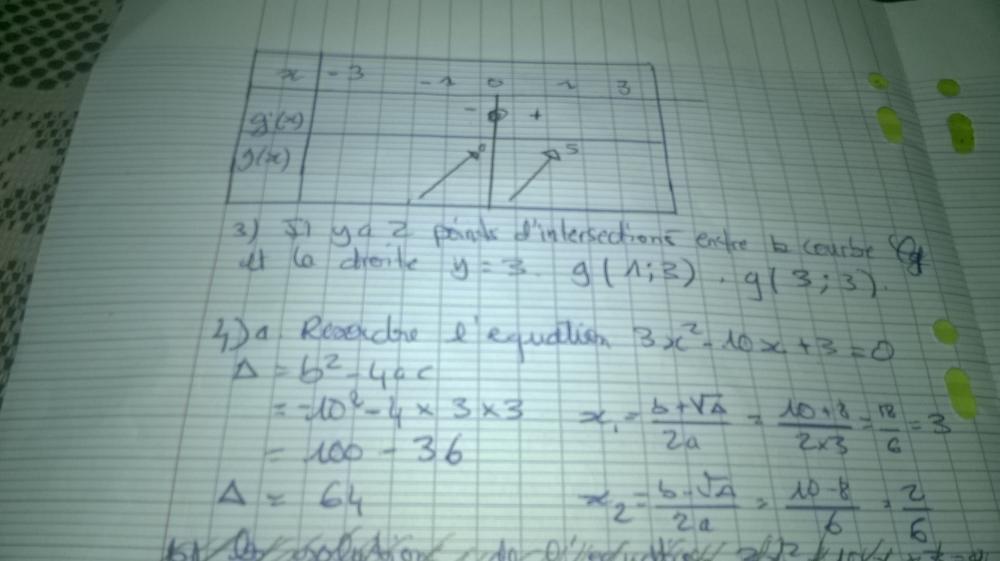 x -3 -1 0 1 3
g'(x) - 0 +
g(x) 5
3) Il y a 2 points d'intersections entre la courbe Cg
et la droite y = 3. g(1;3). g(3;3).
4) a. Resoudre l'equation 3x² - 10x + 3 = 0
Δ = b² - 4ac
= -10² - 4 × 3 × 3
= 100 - 36
Δ = 64
x₁ = b+√Δ / 2a = 10+8 / 2×3 = 18/6 = 3
x₂ = b-√Δ / 2a = 10-8 / 6 = 2/6